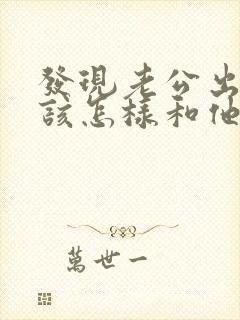 發現老公出
該怎樣和他
萬世一